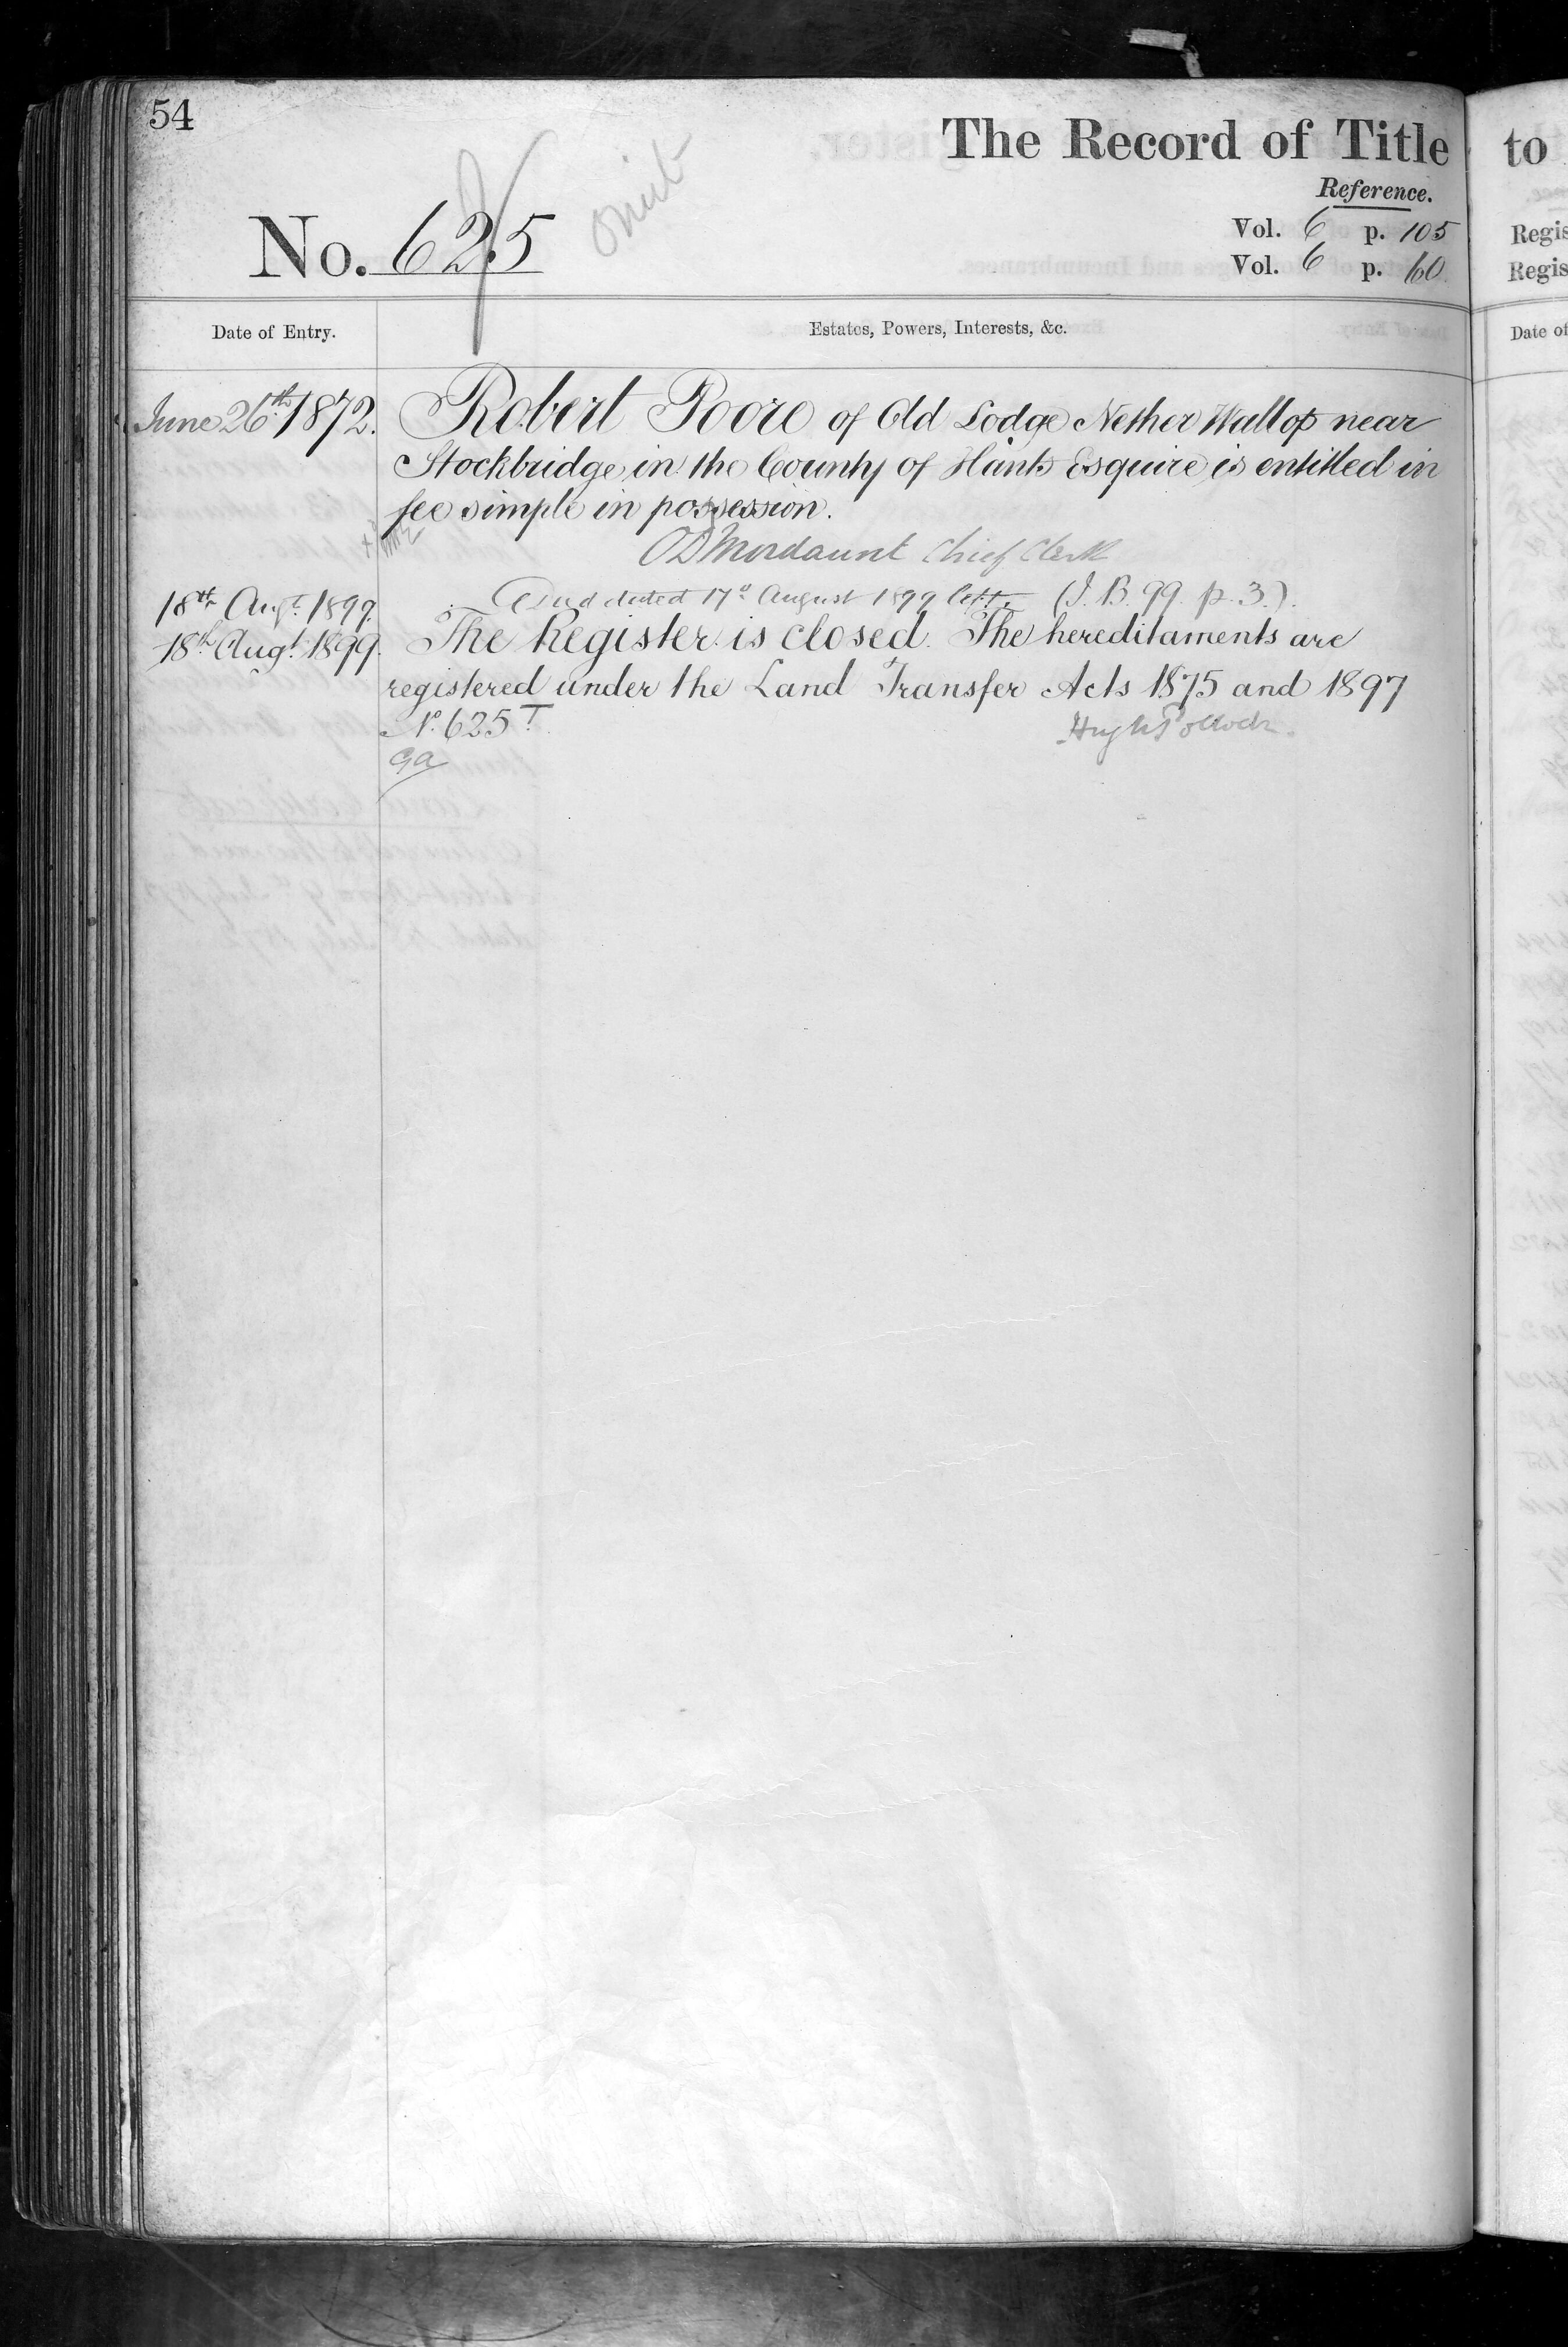 54
The Record of Title to
Reference.
Vol. 6 p. 105 Regis
Vol. 6 p. 60 Regis
No. 625
omit
Date of Entry. Estates, Powers, Interests, &c. Date of
June 26th 1872. Robert Poore of Old Lodge Nether Wallop near
Stockbridge in the County of Hants Esquire is entitled in
fee simple in possession.
Mordaunt Chief Clerk
18th Augt. 1899. Deed dated 17th August 1899 (I.B. 99. p. 3.).
18th Augt. 1899. The Register is closed. The hereditaments are
registered under the Land Transfer Acts 1875 and 1897
No. 625 T Hugh Pollock.